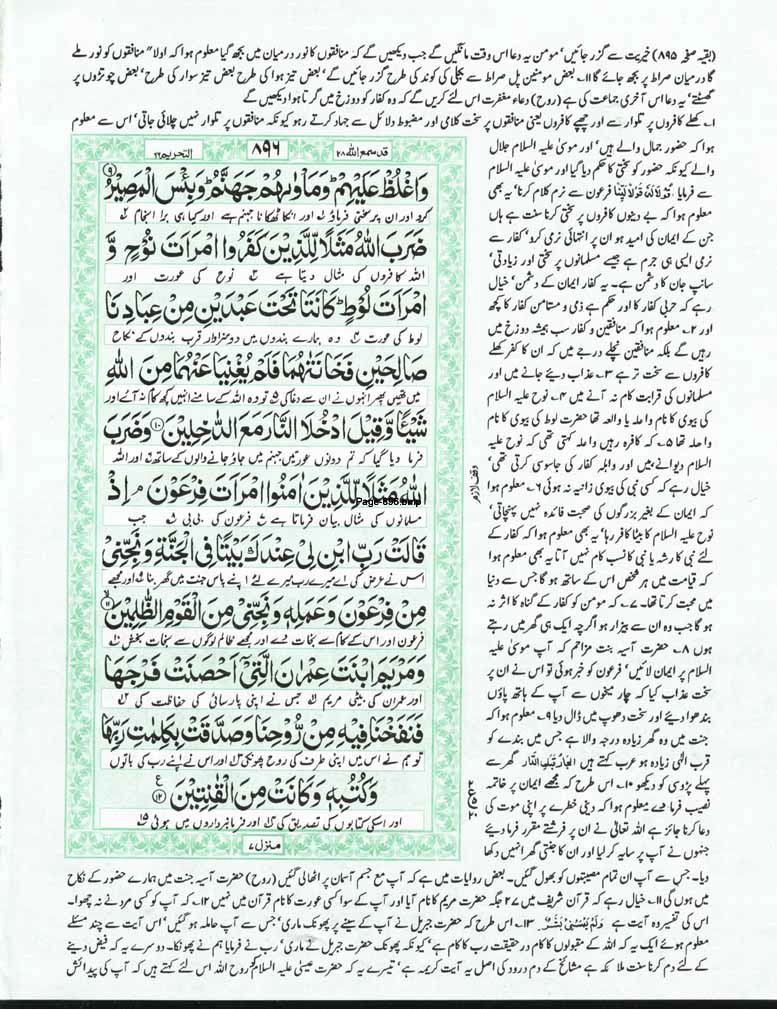 (بقیہ صفحہ ۸۹۵) خیریت سے گزر جائیں‘ مومن یہ دعا اس وقت مانگیں گے جب دیکھیں گے کہ منافقوں کا نور درمیان میں بجھ گیا معلوم ہوا کہ اولاً منافقوں کو نور ملے
گا درمیان صراط پر بجھ جائے گا ۱۱۔ بعض مومنین پل صراط سے بجلی کی کوند کی طرح گزر جائیں گے‘ بعض تیز ہوا کی طرح بعض تیز سوار کی طرح‘ بعض چوتڑوں پر
گھسٹتے‘ یہ دعا اس آخری جماعت کی ہے (روح) دعاء مغفرت اس لئے کریں گے کہ وہ کفار کو دوزخ میں گرتا ہوا دیکھیں گے
۱۔ کھلے کافروں پر تلوار سے اور چھپے کافروں یعنی منافقوں پر سخت کلامی اور مضبوط دلائل سے جہاد کرتے رہو کیونکہ منافقوں پر تلوار نہیں چلائی جاتی‘ اس سے معلوم
ہوا کہ حضور جمال والے ہیں‘ اور موسیٰ علیہ السلام جلال
والے کیونکہ حضور کو سختی کا حکم دیا گیا اور موسیٰ علیہ السلام
سے فرمایا فَقُوْلَا لَهٗ قَوْلًا لَّيِّنًا فرعون سے نرم کلام کرنا‘ یہ بھی
معلوم ہوا کہ بے دینوں کافروں پر سختی کرنا سنت ہے ہاں
جن کے ایمان کی امید ہو ان پر انتہائی نرمی کرو‘ کفار سے
نرمی ایسی ہی جرم ہے جیسے مسلمانوں پر سختی اور زیادتی‘
سانپ جان کا دشمن ہے۔ یہ کفار ایمان کے دشمن‘ خیال
رہے کہ حربی کفار کا اور حکم ہے ذمی و مستامن کفار کا کچھ
اور ۲۔ معلوم ہوا کہ منافقین و کفار سب ہمیشہ دوزخ میں
رہیں گے بلکہ منافقین نچلے درجے میں کہ ان کا کفر کھلے
کافروں سے سخت تر ہے ۳۔ عذاب دیئے جانے میں اور
مسلمانوں کی قرابت کام نہ آنے میں ۴۔ نوح علیہ السلام
کی بیوی کا نام واعلہ یا والعہ تھا حضرت لوط کی بیوی کا نام
واحلہ تھا ۵۔ کہ کافرہ رہیں واعلہ کہتی تھی کہ نوح علیہ
السلام دیوانے ہیں اور واہلہ کفار کی جاسوسی کرتی تھی‘
خیال رہے کہ کسی نبی کی بیوی زانیہ نہ ہوئی ۶۔ معلوم ہوا
کہ ایمان کے بغیر بزرگوں کی صحبت فائدہ نہیں پہنچاتی‘
نوح علیہ السلام کا بیٹا کافر رہا‘ یہ بھی معلوم ہوا کہ کفار کے
لئے نبی کا رشتہ یا نبی کا نسب کام نہیں آتا یہ بھی معلوم ہوا
کہ قیامت میں ہر شخص اس کے ساتھ ہو گا جس سے دنیا
میں محبت کرتا تھا۔ ۷۔ کہ مومن کو کفار کے گناہ کا اثر نہ
ہو گا جب وہ ان سے بیزار ہو اگرچہ ایک ہی گھر میں رہتے
ہوں ۸۔ حضرت آسیہ بنت مزاحم کہ آپ موسیٰ علیہ
السلام پر ایمان لائیں‘ فرعون کو خبر ہوئی تو اس نے ان پر
سخت عذاب کیا کہ چار میخوں سے آپ کے ہاتھ پاؤں
بندھوا دیئے اور سخت دھوپ میں ڈال دیا ۹۔ معلوم ہوا کہ
جنت میں وہ گھر زیادہ درجہ والا ہے جس میں بندے کو
قرب الٰہی زیادہ ہو عرب کہتے ہیں الجار قبل الدار گھر سے
پہلے پڑوسی کو دیکھو ۱۰۔ اس طرح کہ مجھے ایمان پر خاتمہ
نصیب فرما دے معلوم ہوا کہ دینی خطرے پر اپنی موت کی
دعا کرنا جائز ہے اللہ تعالیٰ نے ان پر فرشتے مقرر فرما دیئے
جنہوں نے آپ پر سایہ کر لیا اور ان کا جنتی گھر انہیں دکھا
قدسمع اللہ ۲۸
۸۹۶
التحریم ۶۶
وَاغْلُظْ عَلَيْهِمْ ؕ وَمَاْوٰىهُمْ جَهَنَّمُ ؕ وَبِئْسَ الْمَصِيْرُ ۹
کرو اور ان پر سختی فرماؤ اور انکا ٹھکانا جہنم ہے اور کیا ہی برا انجام
ضَرَبَ اللّٰهُ مَثَلًا لِّلَّذِيْنَ كَفَرُوا امْرَاَتَ نُوْحٍ وَّ
اللہ کافروں کی مثال دیتا ہے نوح کی عورت اور
امْرَاَتَ لُوْطٍ ؕ كَانَتَا تَحْتَ عَبْدَيْنِ مِنْ عِبَادِنَا
لوط کی عورت وہ ہمارے بندوں میں دو سزاوار قرب بندوں کے نکاح
صَالِحَيْنِ فَخَانَتٰهُمَا فَلَمْ يُغْنِيَا عَنْهُمَا مِنَ اللّٰهِ
میں تھیں پھر انہوں نے ان سے دغا کی تو وہ اللہ کے سامنے انہیں کچھ کام نہ آئے اور
شَيْـًٔا وَّقِيْلَ ادْخُلَا النَّارَ مَعَ الدّٰخِلِيْنَ ۱۰ وَضَرَبَ
فرما دیا گیا کہ تم دونوں عورتیں جہنم میں جاؤ جانے والوں کے ساتھ اور اللہ
اللّٰهُ مَثَلًا لِّلَّذِيْنَ اٰمَنُوا امْرَاَتَ فِرْعَوْنَ ۘ اِذْ
Page-896.bmp
مسلمانوں کی مثال بیان فرماتا ہے فرعون کی بی بی جب
قَالَتْ رَبِّ ابْنِ لِيْ عِنْدَكَ بَيْتًا فِي الْجَنَّةِ وَنَجِّنِيْ
اس نے عرض کی اے میرے رب میرے لئے اپنے پاس جنت میں گھر بنا اور مجھے
مِنْ فِرْعَوْنَ وَعَمَلِهٖ وَنَجِّنِيْ مِنَ الْقَوْمِ الظّٰلِمِيْنَ ۱۱
فرعون اور اس کے کام سے نجات دے اور مجھے ظالم لوگوں سے نجات بخش
وَمَرْيَمَ ابْنَتَ عِمْرٰنَ الَّتِيْ اَحْصَنَتْ فَرْجَهَا
اور عمران کی بیٹی مریم جس نے اپنی پارسائی کی حفاظت کی
فَنَفَخْنَا فِيْهِ مِنْ رُّوْحِنَا وَصَدَّقَتْ بِكَلِمٰتِ رَبِّهَا
تو ہم نے اس میں اپنی طرف کی روح پھونکی اور اس نے اپنے رب کی باتوں
وَكُتُبِهٖ وَكَانَتْ مِنَ الْقٰنِتِيْنَ ۱۲ ع
اور اسکی کتابوں کی تصدیق کی اور فرمانبرداروں میں ہوئی
منزل ۷
وقف لازم
دیا۔ جس سے آپ ان تمام مصیبتوں کو بھول گئیں۔ بعض روایات میں ہے کہ آپ مع جسم آسمان پر اٹھالی گئیں (روح) حضرت آسیہ جنت میں ہمارے حضور کے نکاح
میں ہوں گی ۱۱۔ خیال رہے کہ قرآن شریف میں ۲۷ جگہ حضرت مریم کا نام آیا اور آپ کے سوا کسی عورت کا نام قرآن میں نہیں ۱۲۔ کہ آپ کو کسی مرد نے نہ چھوا۔
اس کی تفسیر وہ آیت ہے وَلَمْ يَمْسَسْنِيْ بَشَرٌ ۱۳۔ اس طرح کہ حضرت جبریل نے آپ کے سینے پر پھونک ماری‘ جس سے آپ حاملہ ہو گئیں‘ اس آیت سے چند مسئلے
معلوم ہوئے ایک یہ کہ اللہ کے مقبولوں کا کام در حقیقت رب کا کام ہے‘ کیونکہ پھونک حضرت جبریل نے ماری‘ رب نے فرمایا ہم نے پھونکا۔ دوسرے یہ کہ فیض دینے
کے لئے دم کرنا سنت ملا ئکہ ہے مشائخ کے دم درود کی اصل یہ آیت کریمہ ہے‘ تیسرے یہ کہ حضرت عیسیٰ علیہ السلام کو روح اللہ اس لئے کہتے ہیں کہ آپ کی پیدائش